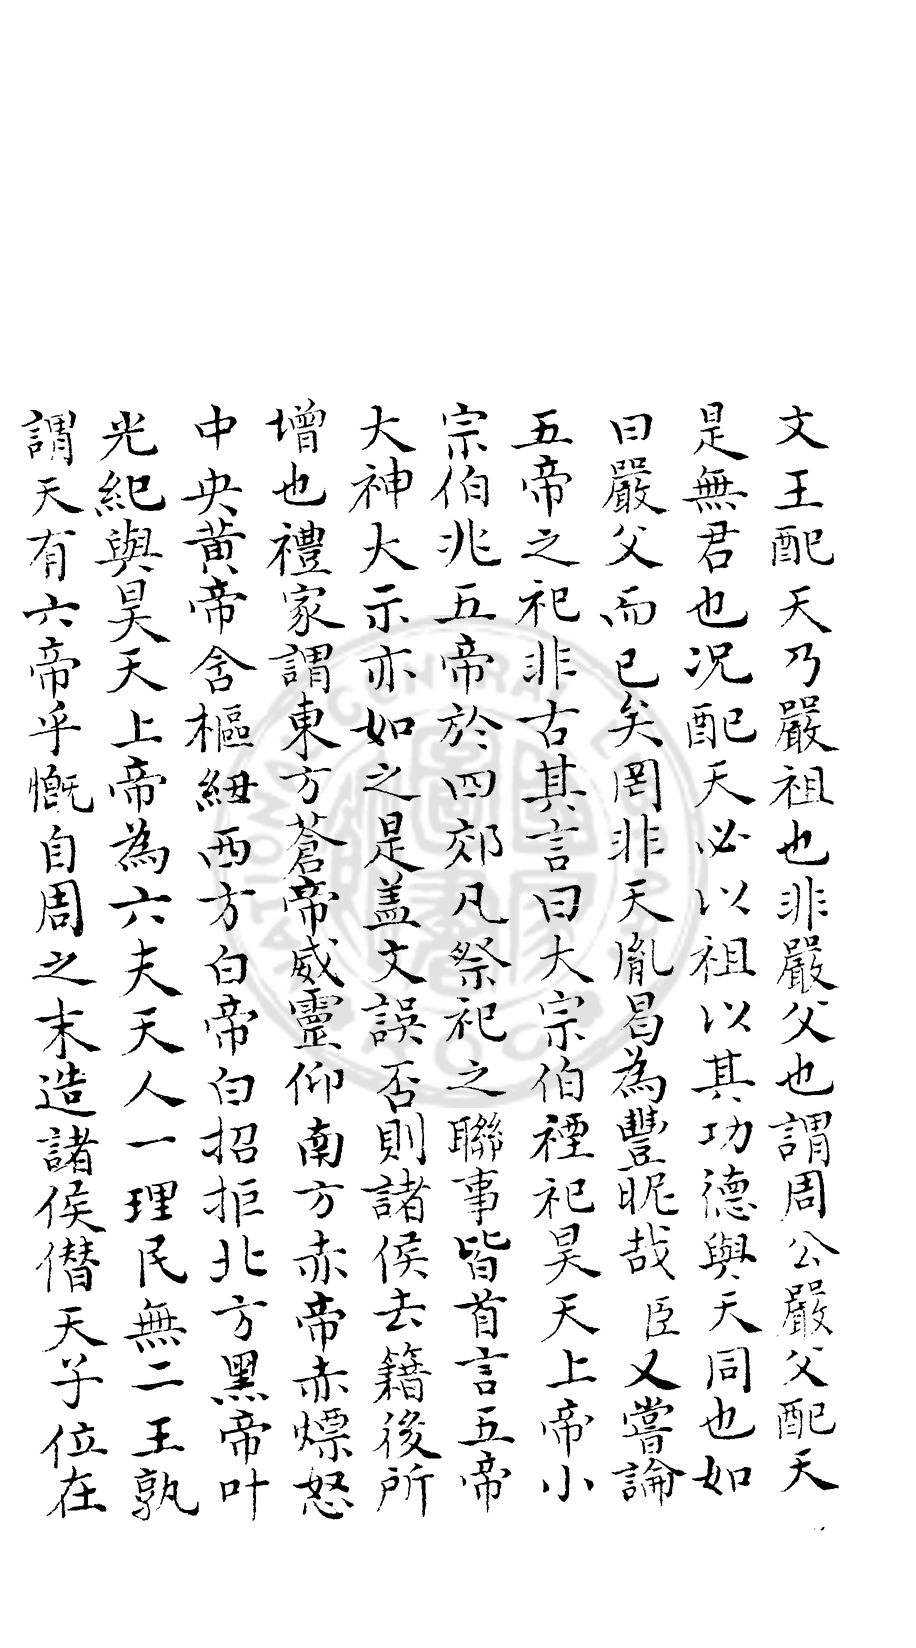 文王配天乃嚴祖也非嚴父也謂周公嚴父配天
是無君也况配天必以祖以其功德與天同也如
曰嚴父而已矣罔非天胤曷為豐昵哉臣又嘗論
五帝之祀非古其言曰大宗伯禋祀昊天上帝小
宗伯兆五帝於四郊凡祭祀之聯事皆首言五帝
大神大示亦如之是盖文誤否則諸侯去籍後所
增也禮家謂東方蒼帝威靈仰南方赤帝赤熛怒
中央黄帝含樞紐西方白帝白招拒北方黑帝叶
光紀與昊天上帝為六夫天人一理民無二王孰
謂天有六帝乎慨自周之末造諸侯僭天子位在